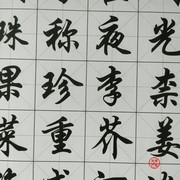 珠称夜光
果珍李柰
菜重芥姜